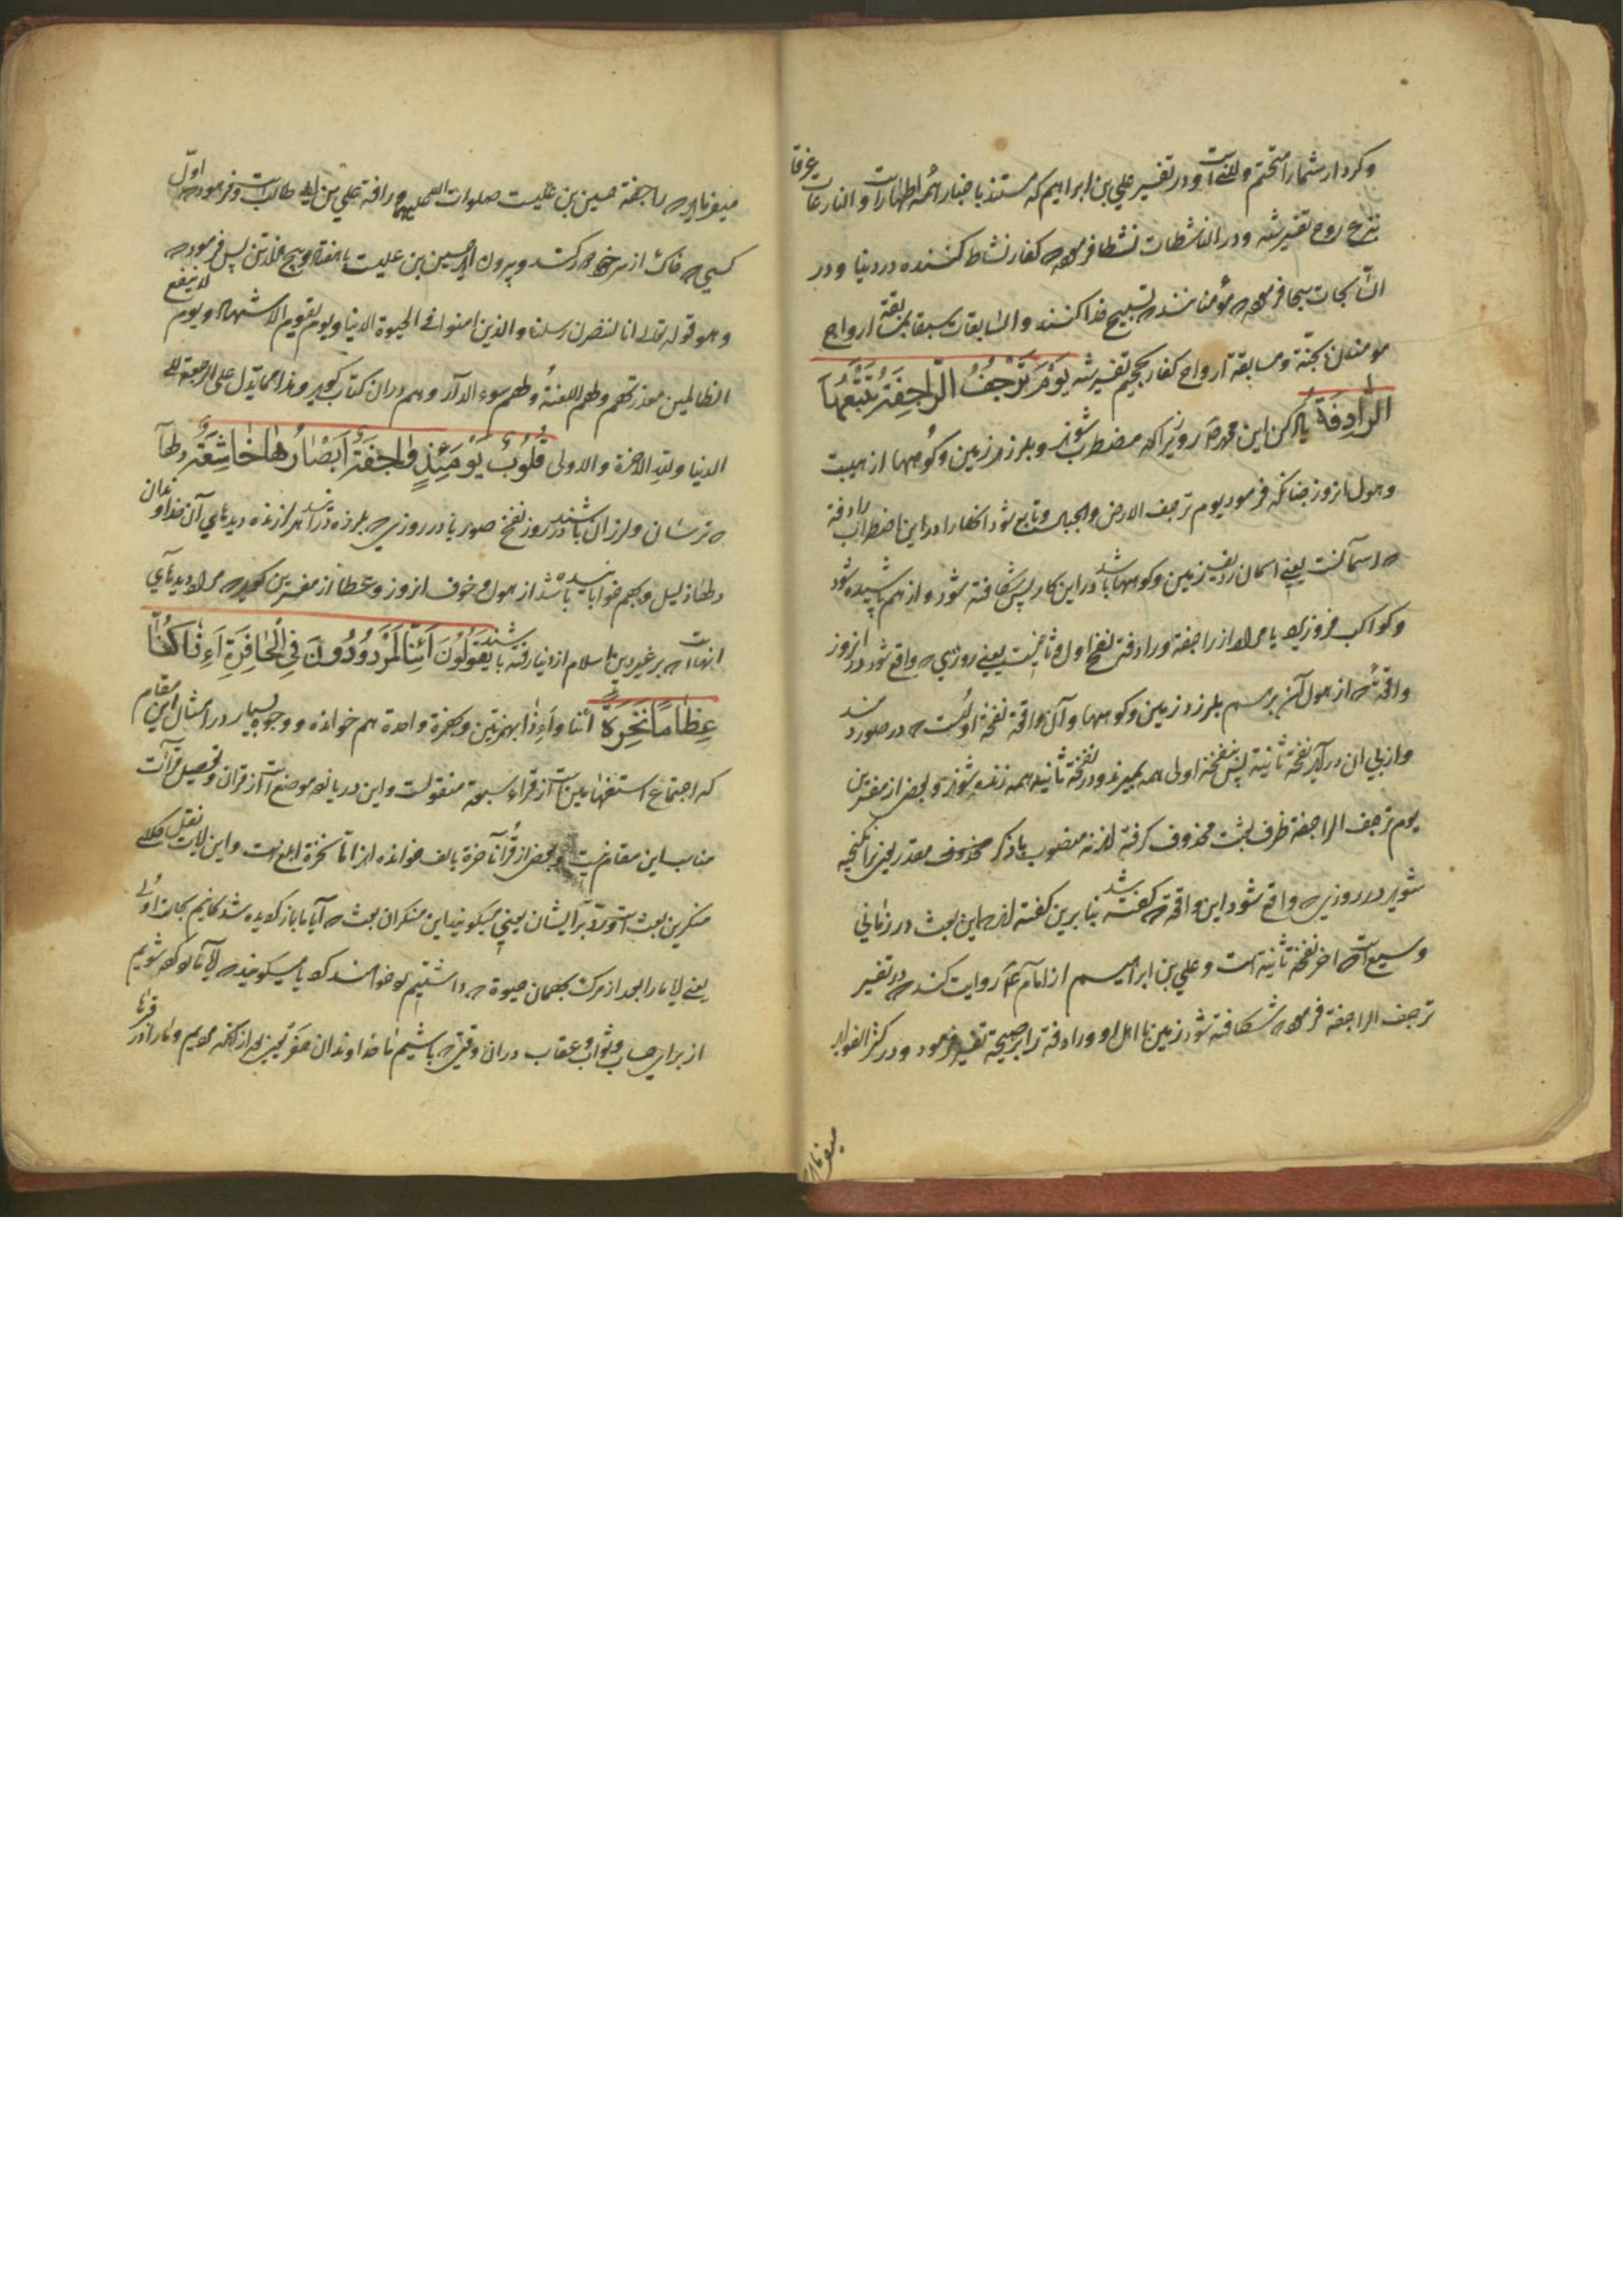 وکردار شمارا متحتم ولقینست ودر تفسیر علي بن ابراهیم که مستند باخبار ائمه اطهارست والنازعات غرقا
بنزع روح تفسیر شده ودر الناشطات نشطا فرموده کفار نشاط کننده در دنیا ودر
السابحات سبحا فرموده مؤمنانند که تسبیح خدا کنند والسابقات سبقا بمسابقة ارواح
مومنان بجنّة ومسابقة ارواح کفار بجحیم تفسیر شده یَوْمَ تَرْجُفُ الرَّاجِفَةُ تَتْبَعُهَا
الرَّادِفَةُ یاد کن این محمد روزیرا که مضطرب شوند وبلرزد زمین وکوهها از هیبت
وهول انروز چنانکه فرمود یوم ترجف الارض والجبال وتابع شود انها را در این اضطراب رادفة
که اسمانست یعني اسمان ردیف زمین وکوهها باشد در این کار پس شکافته شود واز هم پاشیده شود
وکواکب فروریزد یا مراد از راجفة ورادفة نفخ اول وثانیست یعني روزي که واقع شود در انروز
واقعهٔ که از هول آن برهم بلرزد زمین وکوهها وآن واقعة نفخهٔ اولست که در صور دمند
وازپي ان در آید نفخهٔ ثانیة پس بنفخهٔ اولی همه بمیرند ودر نفخة ثانیه همه زنده شوند وبعضي از مفسرین
یوم ترجف الراجفة ظرف لبعث محذوف گرفته اند نه منصوب باذکر محذوف مقدر یعني برانگیخته
شوید در روزي که واقع شود این واقعة که گفته شد بنابرین گفته اند که این بعث در زماني
وسیع است که اخر نفخهٔ ثانیة است وعلي بن ابراهیم از امام ع روایت کند که در تفسیر
ترجف الراجفة فرموده شکافته شود زمین با اهل او ورادفة را بصیحة تفسیر فرمود ودر کنز الفوائد
میفرماید
میفرماید که راجفة حسین بن علیست صلوات الله علیهما ورادفة علي بن ابي طالبست وفرموده اول
کسي که خاک از سر خود کشد وبیرون اید حسین بن علیست با هفتاد وپنج هزار تن پس فرموده
وهو قوله تعالی انا لننصر رسلنا والذین امنوا في الحیوة الدنیا ویوم یقوم الاشهاد ویوم لا ینفع
الظالمین معذرتهم ولهم اللعنة ولهم سوء الدار وهم در ان کتاب گوید وهذا مما یدل علی الرجعة الی
الدنیا ولله الاخرة والاولی قُلُوبٌ یَوْمَئِذٍ وَاجِفَةٌ أَبْصَارُهَا خَاشِعَةٌ دلها
که ترسان ولرزان باشند در روز نفخ صور یا در روزي که بلرزه درآید هر لرزنده دیدهاي آن خداوندان
دلها ذلیل وبهم خوابانیده باشد از هول وخوف انروز وعطا از مفسرین گوید که مراد دیدهاي
انهاست که بر غیر دین اسلام از دنیا رفته باشند یَقُولُونَ أَئِنَّا لَمَرْدُودُونَ فِي الْحَافِرَةِ أَءِذَا كُنَّا
عِظَامًا نَخِرَةً ائنا وأءذا بهمزتین وبهمزة واحدة هم خوانده ووجوه بسیار در امثال این مقام
که اجتماع استفهامین است از قراء سبعة منقولست واین در یازده موضع است از قران وتحصیل قرآات
مناسب این مقام نیست وبعضي از قراء ناخرة بالف خوانده اند اما نخرة ابلغ است واین ایات نقل کلام
منکرین بعث است ورد بر ایشان یعني میگویند این منکران بعث که آیا ما باز گردیده شدگانیم بحالت اولی
یعني ایا ما را بعد از مرگ بهمان حیوة که داشتیم او خواهند کرد یا میگویند که ایا ما زنده شویم
از براي حساب وثواب وعقاب در ان وقتي که باشیم ما خداوندان عظام نخرة از آنکه مردیم وما را در قبرها